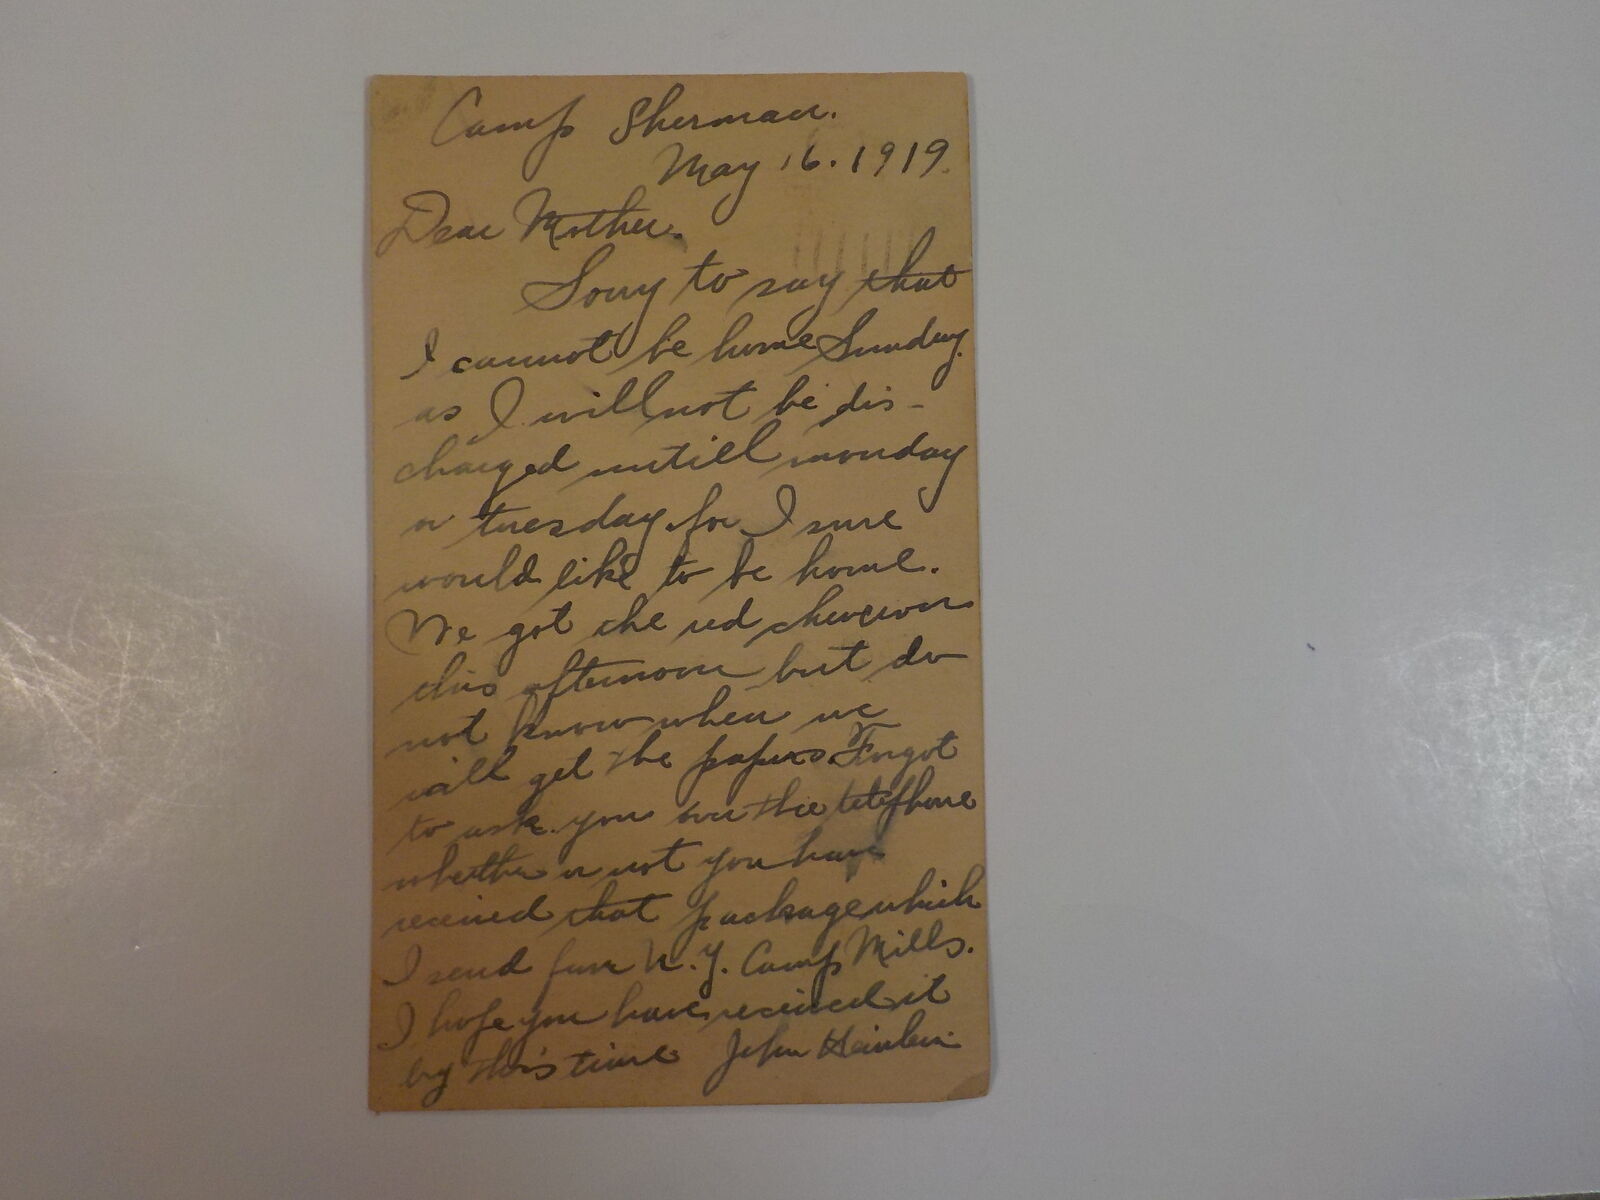 Camp Sherman.
May 16. 1919.
Dear Mother.
Sorry to say that
I cannot be home Sunday.
as I will not be dis-
charged untill monday
or tuesday for I sure
would like to be home.
We got the red chevron
this afternoon but do
not know when we
will get the papers. Forgot
to ask you over the telephone
whether or not you have
received that package which
I send from N. Y. Camp Mills.
I hope you have received it
by this time John Heinlein